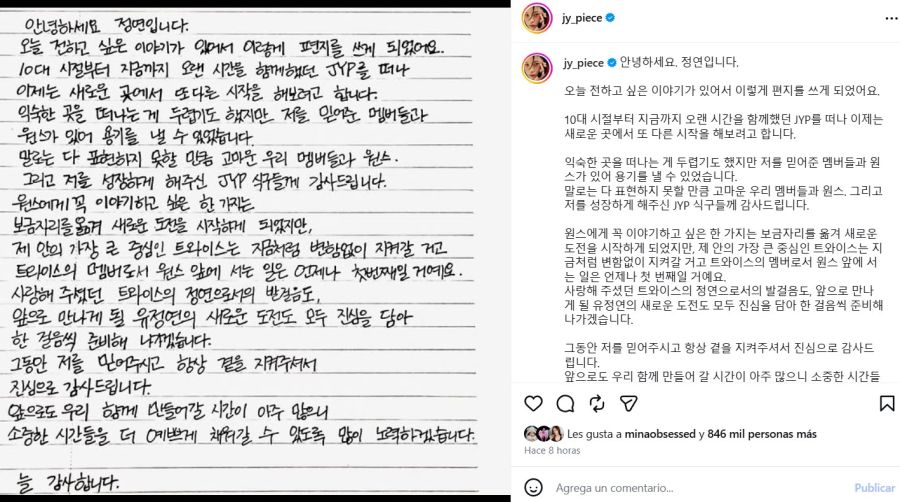 안녕하세요 정연입니다.
오늘 전하고 싶은 이야기가 있어서 이렇게 편지를 쓰게 되었어요.
10대 시절부터 지금까지 오랜 시간을 함께했던 JYP를 떠나
이제는 새로운 곳에서 또 다른 시작을 해보려고 합니다.
익숙한 곳을 떠나는 게 두렵기도 했지만 저를 믿어준 멤버들과
원스가 있어 용기를 낼 수 있었습니다.
말로는 다 표현하지 못할 만큼 고마운 우리 멤버들과 원스.
그리고 저를 성장하게 해주신 JYP 식구들께 감사드립니다.
원스에게 꼭 이야기하고 싶은 한 가지는
보금자리를 옮겨 새로운 도전을 시작하게 되었지만,
제 안의 가장 큰 중심인 트와이스는 지금처럼 변함없이 지켜갈 거고
트와이스의 멤버로서 원스 앞에 서는 일은 언제나 첫번째일 거예요.
사랑해 주셨던 트와이스의 정연으로서의 발걸음도,
앞으로 만나게 될 유정연의 새로운 도전도 모두 진심을 담아
한 걸음씩 준비해 나가겠습니다.
그동안 저를 믿어주시고 항상 곁을 지켜주셔서
진심으로 감사드립니다.
앞으로도 우리 함께 만들어갈 시간이 아주 많으니
소중한 시간들을 더 예쁘게 채워갈 수 있도록 많이 노력하겠습니다.
늘 감사합니다.
jy_piece
jy_piece 안녕하세요. 정연입니다.
오늘 전하고 싶은 이야기가 있어서 이렇게 편지를 쓰게 되었어요.
10대 시절부터 지금까지 오랜 시간을 함께했던 JYP를 떠나 이제는
새로운 곳에서 또 다른 시작을 해보려고 합니다.
익숙한 곳을 떠나는 게 두렵기도 했지만 저를 믿어준 멤버들과 원
스가 있어 용기를 낼 수 있었습니다.
말로는 다 표현하지 못할 만큼 고마운 우리 멤버들과 원스. 그리고
저를 성장하게 해주신 JYP 식구들께 감사드립니다.
원스에게 꼭 이야기하고 싶은 한 가지는 보금자리를 옮겨 새로운
도전을 시작하게 되었지만, 제 안의 가장 큰 중심인 트와이스는 지
금처럼 변함없이 지켜갈 거고 트와이스의 멤버로서 원스 앞에 서
는 일은 언제나 첫 번째일 거예요.
사랑해 주셨던 트와이스의 정연으로서의 발걸음도, 앞으로 만나
게 될 유정연의 새로운 도전도 모두 진심을 담아 한 걸음씩 준비해
나가겠습니다.
그동안 저를 믿어주시고 항상 곁을 지켜주셔서 진심으로 감사드
립니다.
앞으로도 우리 함께 만들어 갈 시간이 아주 많으니 소중한 시간들
Les gusta a minaobsessed y 846 mil personas más
Hace 8 horas
Agrega un comentario...
Publicar